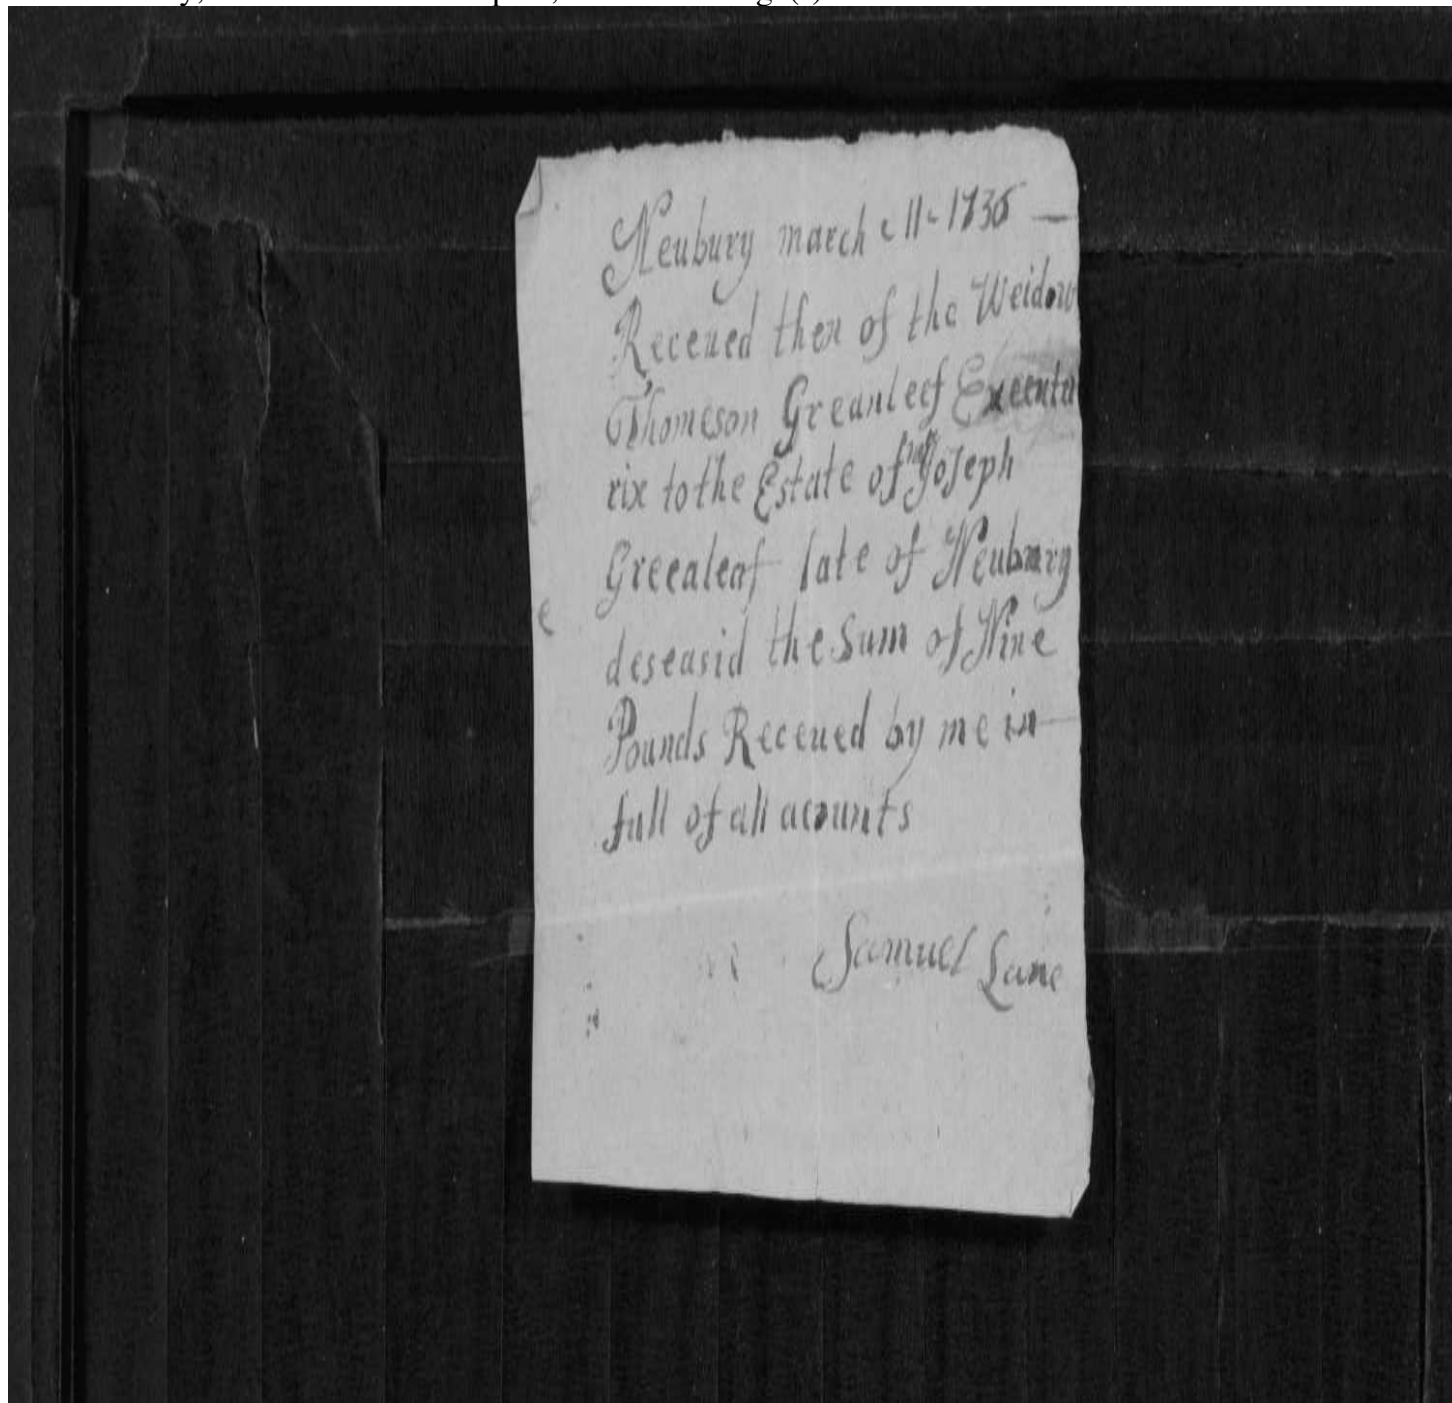 Neubury march 11 1736
Receued then of the Weidow
Thomeson Greanleef Executa
rix to the Estate of Joseph
Greealeaf late of Neubury
deseasid the Sum of Nine
Pounds Receued by me in
full of all acounts
Samuel Lane